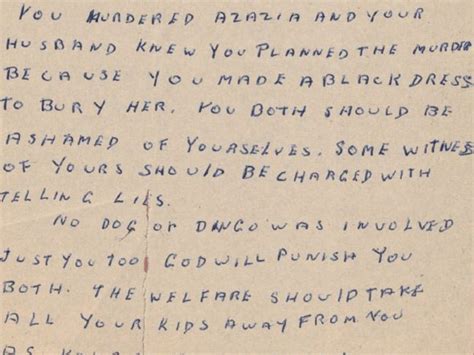 YOU MURDERED AZAZIA AND YOUR
HUSBAND KNEW YOU PLANNED THE MURDER
BECAUSE YOU MADE A BLACK DRESS
TO BURY HER. YOU BOTH SHOULD BE
ASHAMED OF YOURSELVES. SOME WITNESS
OF YOURS SHOULD BE CHARGED WITH
TELLING LIES.
NO DOG OR DINGO WAS INVOLVED
JUST YOU TOO GOD WILL PUNISH YOU
BOTH. THE WELFARE SHOULD TAKE
ALL YOUR KIDS AWAY FROM YOU